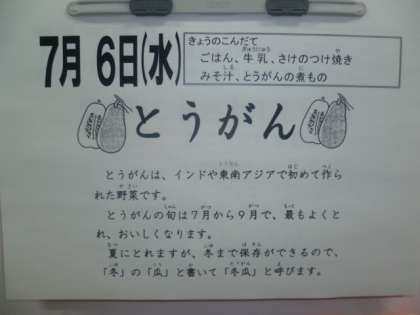 7月 6日(水)
きょうのこんだて
ごはん、牛乳、さけのつけ焼き
みそ汁、とうがんの煮もの
とうがん
とうがんは、インドや東南アジアで初めて作ら
れた野菜です。
とうがんの旬は7月から9月で、最もよくと
れ、おいしくなります。
夏にとれますが、冬まで保存ができるので、
「冬」の「瓜」と書いて「冬瓜」と呼びます。